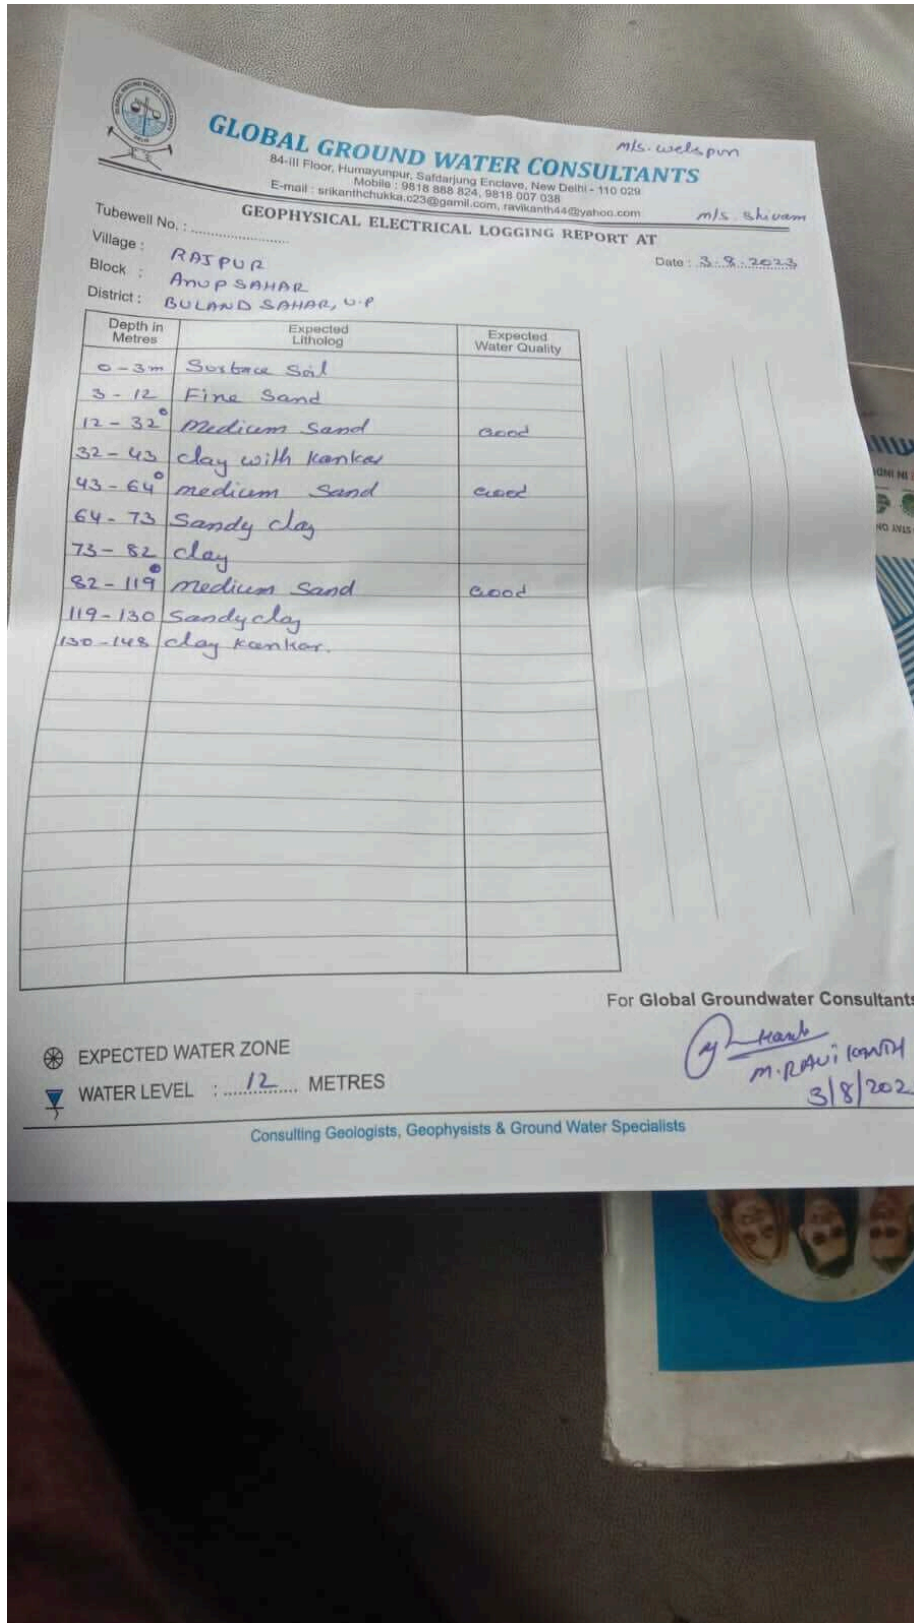 GLOBAL GROUND WATER CONSULTANTS
m/s. welspun
84-III Floor, Humayunpur, Safdarjung Enclave, New Delhi - 110 029
Mobile : 9818 888 824, 9818 007 038
E-mail : srikanthchukka.c23@gamil.com, ravikanth44@yahoo.com
m/s. Shivam
GEOPHYSICAL ELECTRICAL LOGGING REPORT AT
Tubewell No. :
Date : 3.8.2023
Village : RAJPUR
Block : ANUP SAHAR
District : BULAND SAHAR, U.P
Depth in Metres Expected Litholog Expected Water Quality
0-3m Surface Soil
3-12 Fine Sand
12-32 medium Sand Good
32-43 clay with kankar
43-64 medium Sand Good
64-73 Sandy clay
73-82 clay
82-119 medium Sand Good
119-130 Sandy clay
130-148 clay kankar.
For Global Groundwater Consultants
M. RAVI KANTH
3/8/202
EXPECTED WATER ZONE
WATER LEVEL : 12 METRES
Consulting Geologists, Geophysists & Ground Water Specialists